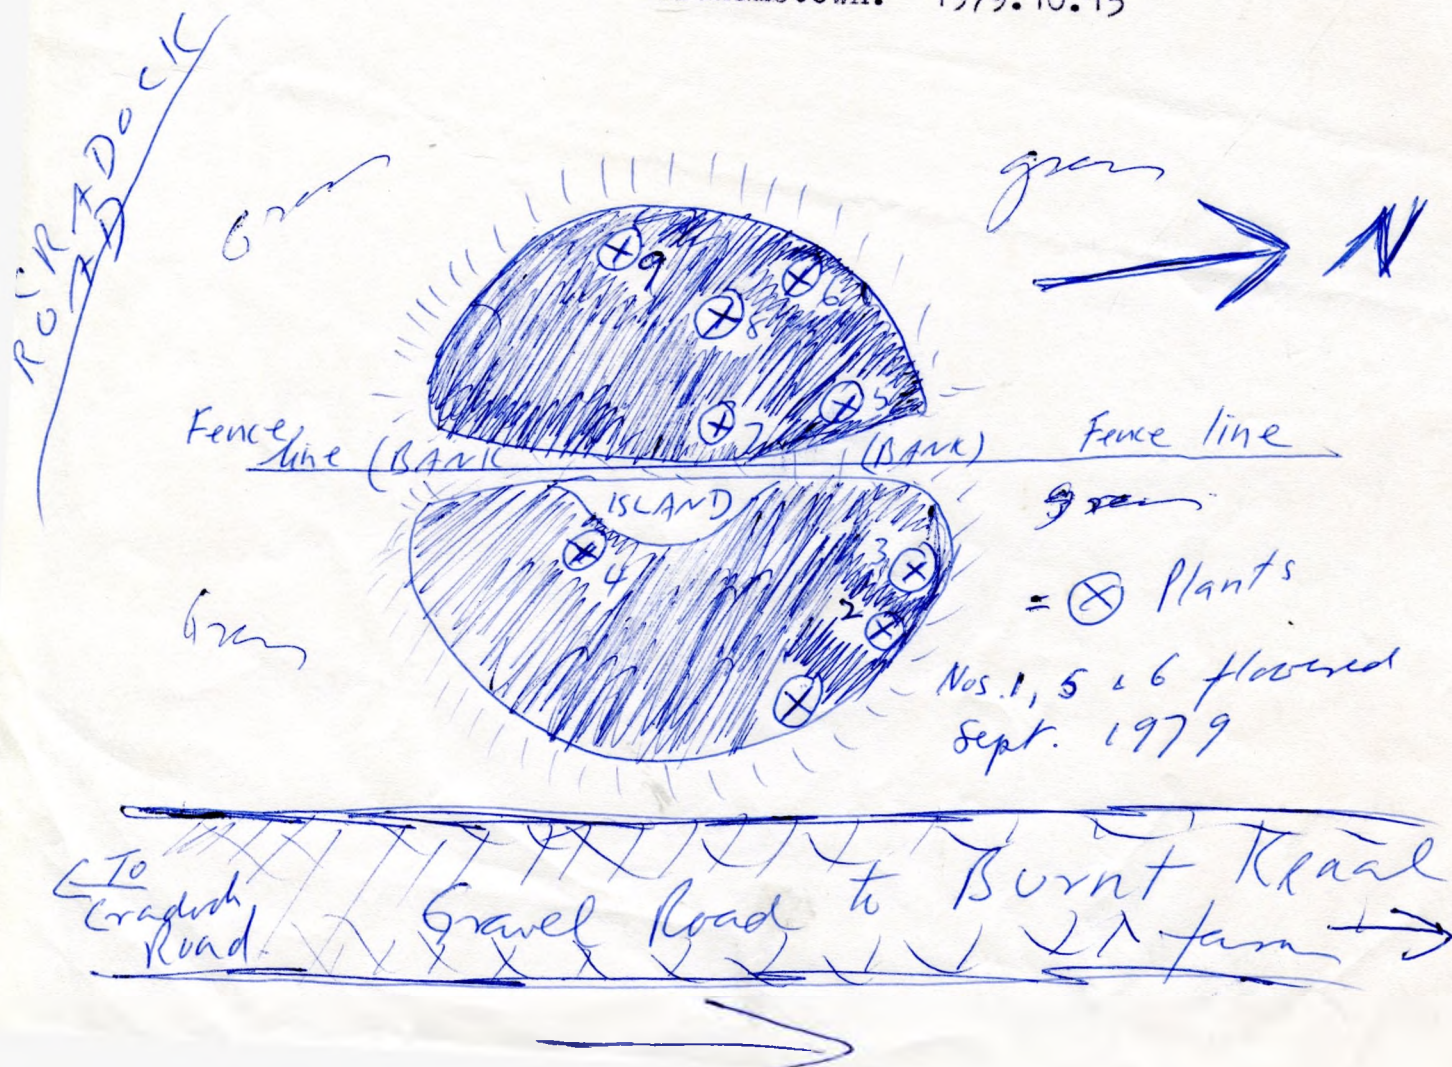 1979.10.15
CRADOCK
ROAD
Grass
grass
N
9
6
8
5
7
Fence
line (BANK
(BANK)
Fence line
ISLAND
grass
4
3
2
= ⊗ Plants
Grass
Nos. 1, 5 & 6 flowered
Sept. 1979
To
Cradock
Road
Gravel Road to Burnt Kraal
farm